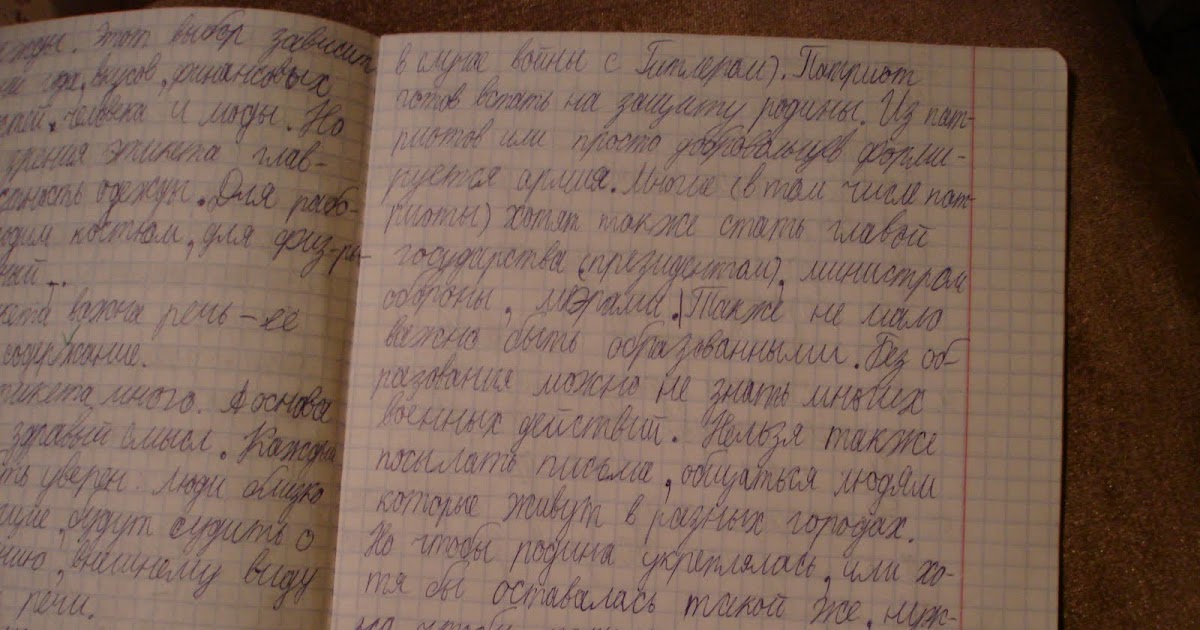 жды. Этот выбор зависит
года, вкусов, финансовых
человека и моды. Но
зрения этикета глав-
одежды. Для рабо-
костюм, для физ-ры-
важна речь – её
содержание.
этикета много. А основа
здравый смысл. Кажды
уверен люди близко
будут судить о
внешнему виду
речи.
в случае войны с Гитлером). Патриот
готов встать на защиту родины. Из пат-
риотов или просто добровольцев форми-
руется армия. Многие (в том числе пат-
риоты) хотят также стать главой
государства (президентом), министром
обороны, мэрами. Также не мало
важно быть образованными. Без об-
разования можно не знать многих
военных действий. Нельзя также
посылать письма, общаться людям
которые живут в разных городах.
Но чтобы родина укреплялась, или хо-
тя бы оставалась такой же, нуж-
но чтобы